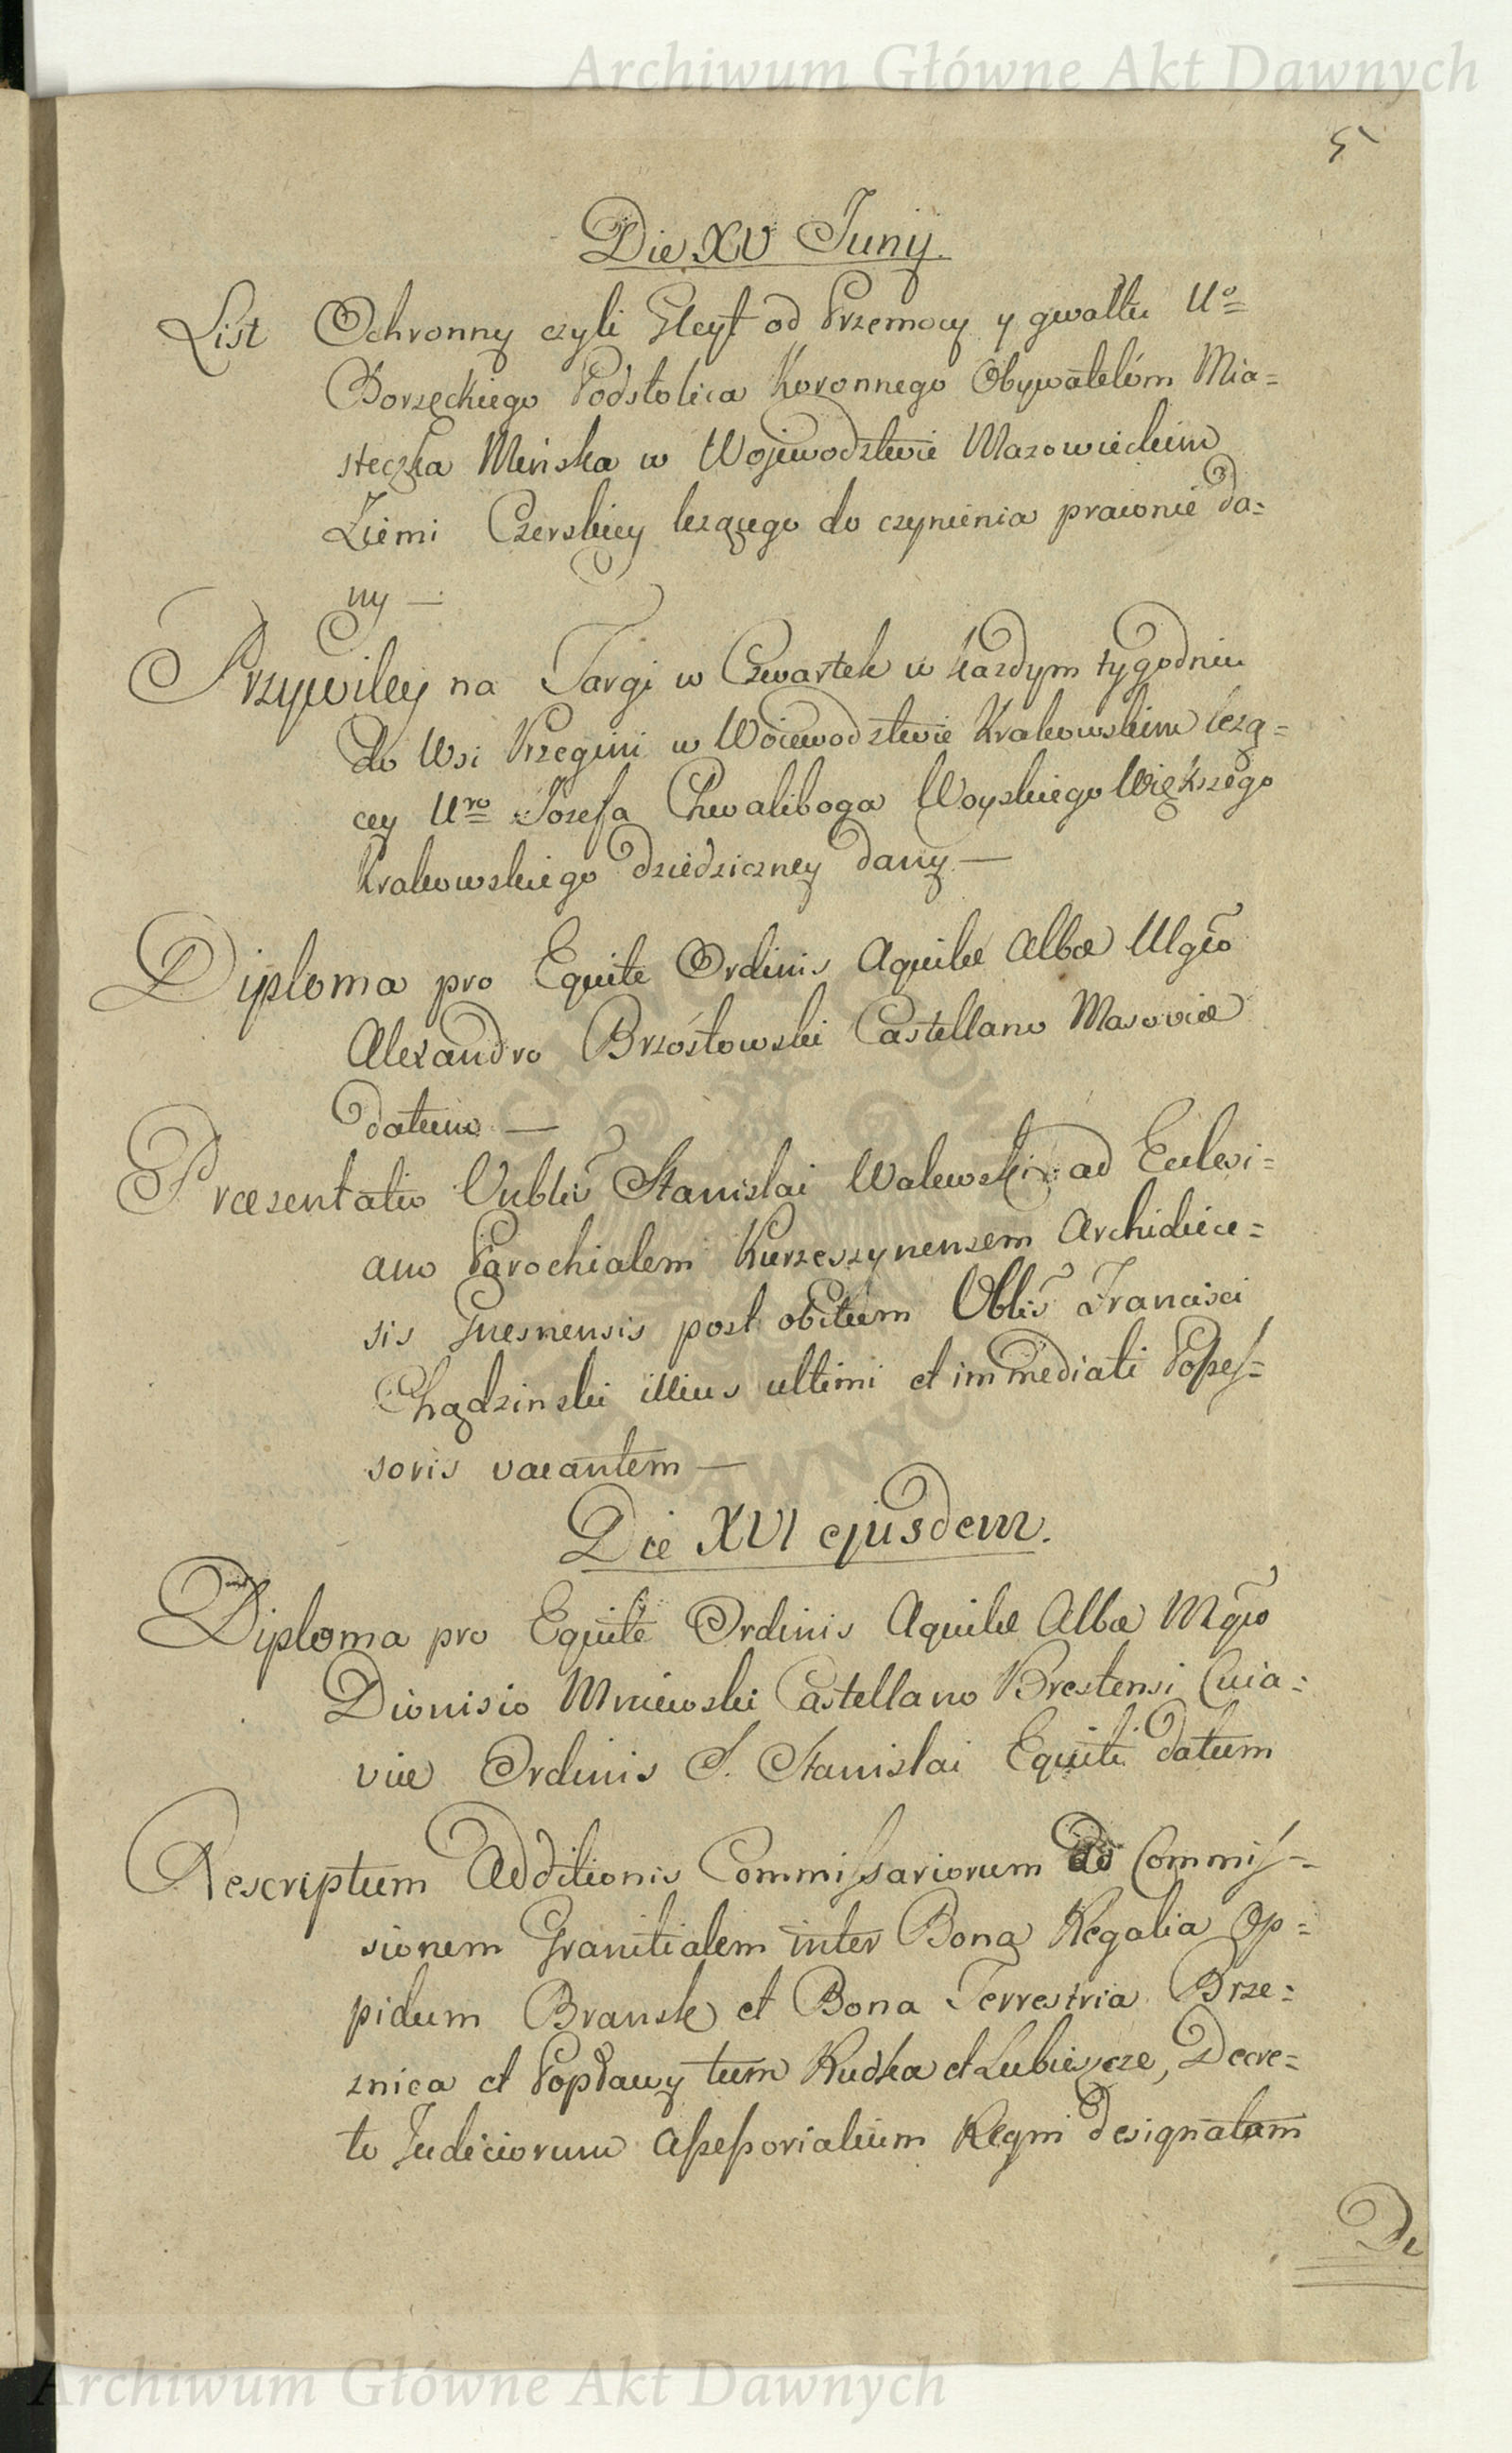 Archiwum Główne Akt Dawnych
5
Die XV Junij.
List Ochronny czyli Gleyt od Przemocy y gwałtu Uo
Borzęckiego Podstolica Koronnego Obywatelóm Mia=
steczka Mińska w Wojewodztwie Mazowieckim
Ziemi Czerskiey leżącego do czynienia prawnie da=
ny —
Przywiley na Targi w Czwartek w każdym tygodniu
do Wsi Przegini w Woiewodztwie Krakowskim leżą=
cey Uro Jozefa Chwaliboga Woyskiego Większego
Krakowskiego dziedziczney dany —
Diploma pro Equite Ordinis Aquilæ Albæ Mgco
Alexandro Brzóstowski Castellano Masoviæ
datum —
Præsentatio Vnblis Stanislai Walewski ad Ecclesi=
am Parochialem Kurzeszynensem Archidiece=
sis Gnesnensis post obitum Vblis Francisci
Chądzinski illius ultimi et immediati Posses=
soris vacantem —
Die XVI ejusdem.
Diploma pro Equite Ordinis Aquilæ Albæ Mgco
Dionisio Mniewski Castellano Brestensi Cuia=
viæ Ordinis S. Stanislai Equiti datum
Rescriptum Additionis Commissariorum ad Commis=
sionem Granitialem inter Bona Regalia Op=
pidum Bransk et Bona Terrestria Brze=
znica et Popławy tum Rudka et Lubieszcze, Decre=
to Judiciorum Assessorialium Regni designatam
De
Archiwum Główne Akt Dawnych